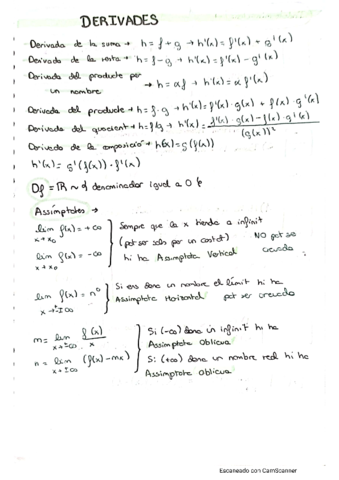 DERIVADES
Derivada de la suma → h = f + g → h'(x) = f'(x) + g'(x)
Derivada de la resta → h = f - g → h'(x) = f'(x) - g'(x)
Derivada del producte per
un nombre → h = αf → h'(x) = α f'(x)
Derivada del producte → h = f · g → h'(x) = f'(x) · g(x) + f(x) · g'(x)
Derivada del quocient → h = f/g → h'(x) = f'(x) · g(x) - f(x) · g'(x) / (g(x))²
Derivada de la composició → h(x) = g(f(x))
h'(x) = g'(f(x)) · f'(x)
Df = ℝ ~ el denominador igual a 0
Assímptotes →
lim f(x) = +∞
x→x₀
lim f(x) = -∞
x→x₀
Sempre que la x tendeix a infinit
(pot ser sols per un costat) NO pot ser
hi ha Assímptota Vertical creuada
lim f(x) = nº
x→±∞
Si ens dona un nombre el límit hi ha
Assímptota Horizontal pot ser creuada
m = lim f(x)/x
x→±∞
n = lim (f(x) - mx)
x→±∞
Si (-∞) dona un infinit hi ha
Assímptota Oblicua
Si (+∞) dona un nombre real hi ha
Assímptota Oblicua
Escaneado con CamScanner